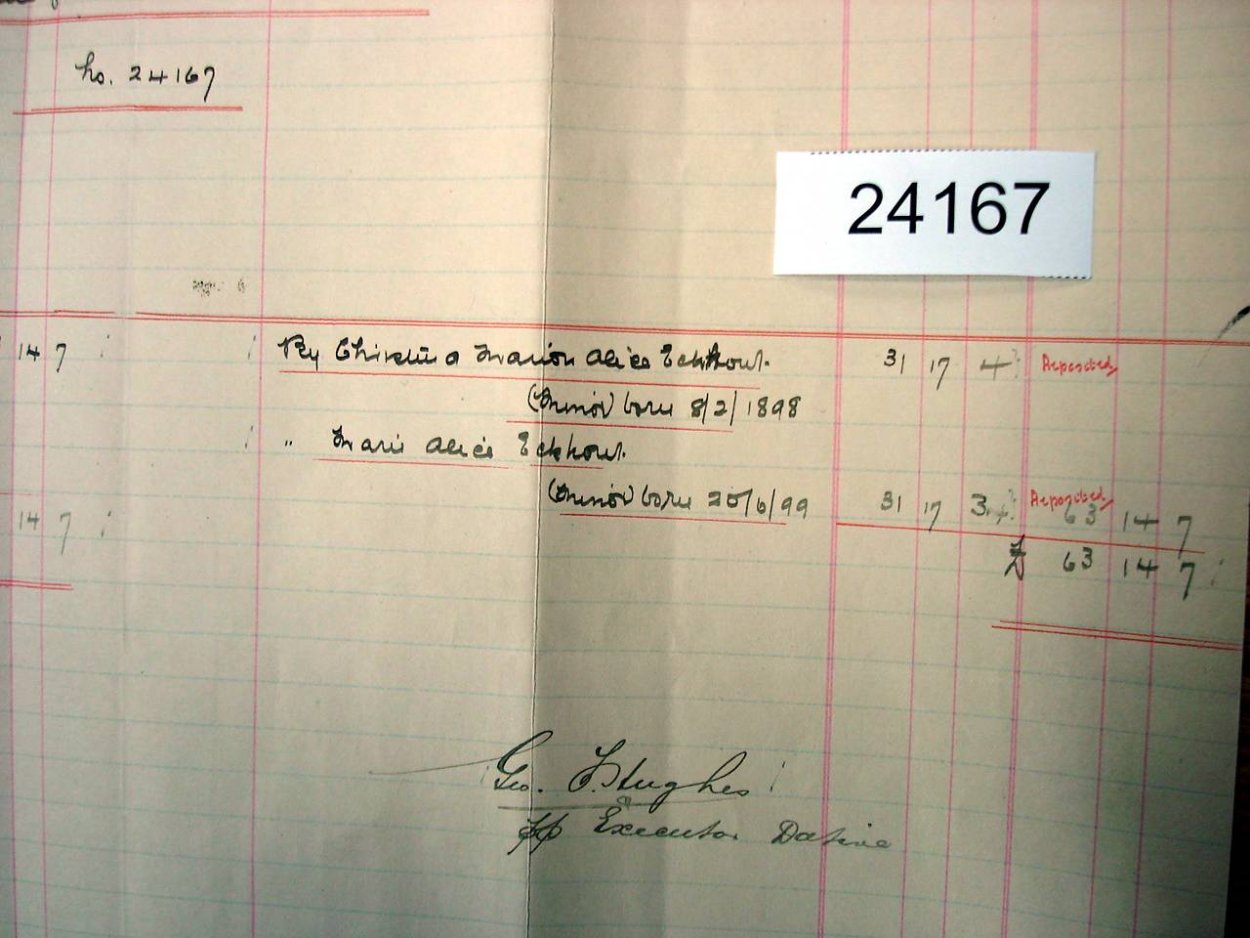 No. 24167
24167
14 7 By Christina Marion Alice Eckhout. 31 17 4 Deposited
(Minor) born 8/2/1898
" Marie Alice Eckhout.
(Minor) born 20/6/99 31 17 3 Deposited 63 14 7
14 7
£ 63 14 7
Geo. F. Hughes
pp Executor Dative